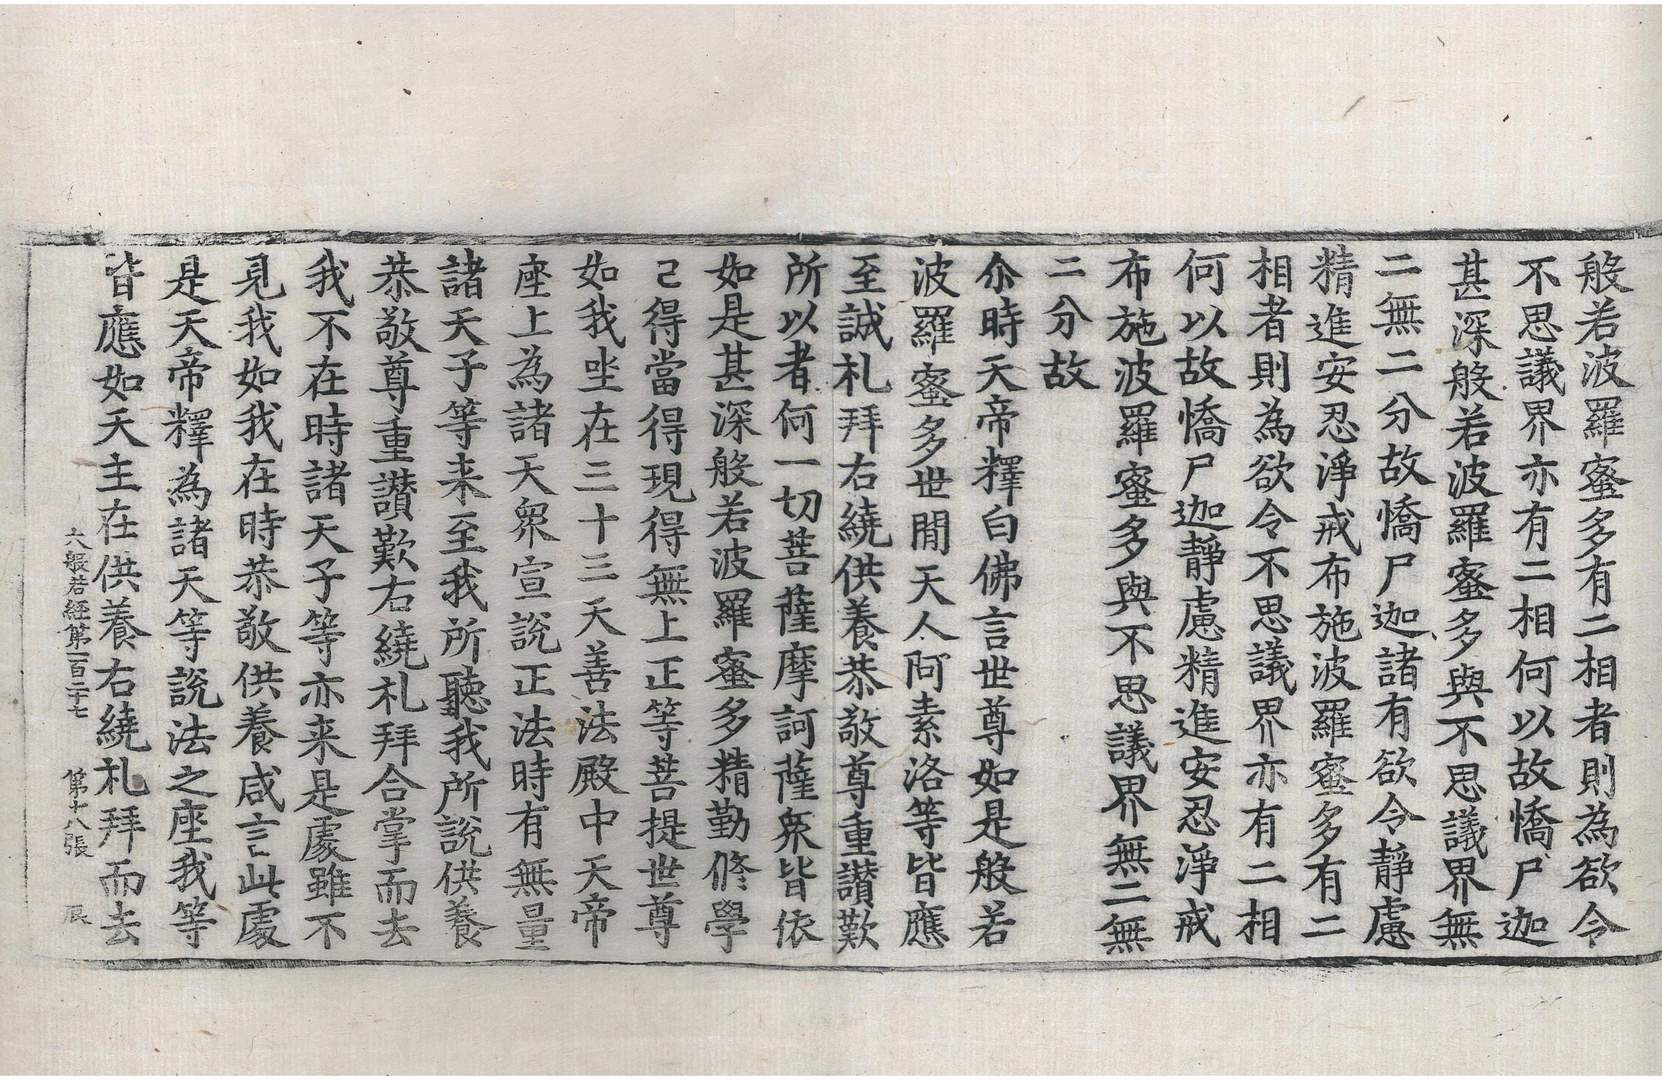 般若波羅蜜多有二相者則為欲令
不思議界亦有二相何以故憍尸迦
甚深般若波羅蜜多與不思議界無
二無二分故憍尸迦諸有欲令靜慮
精進安忍淨戒布施波羅蜜多有二
相者則為欲令不思議界亦有二相
何以故憍尸迦靜慮精進安忍淨戒
布施波羅蜜多與不思議界無二無
二分故
尒時天帝釋白佛言世尊如是般若
波羅蜜多世閒天人阿素洛等皆應
至誠礼拜右繞供養恭敬尊重讃歎
所以者何一切菩薩摩訶薩衆皆依
如是甚深般若波羅蜜多精勤修學
已得當得現得無上正等菩提世尊
如我坐在三十三天善法殿中天帝
座上為諸天衆宣說正法時有無量
諸天子等来至我所聽我所說供養
恭敬尊重讃歎右繞礼拜合掌而去
我不在時諸天子等亦来是處雖不
見我如我在時恭敬供養咸言此處
是天帝釋為諸天等說法之座我等
皆應如天主在供養右繞礼拜而去
大般若經第一百二十七　第十八張　辰